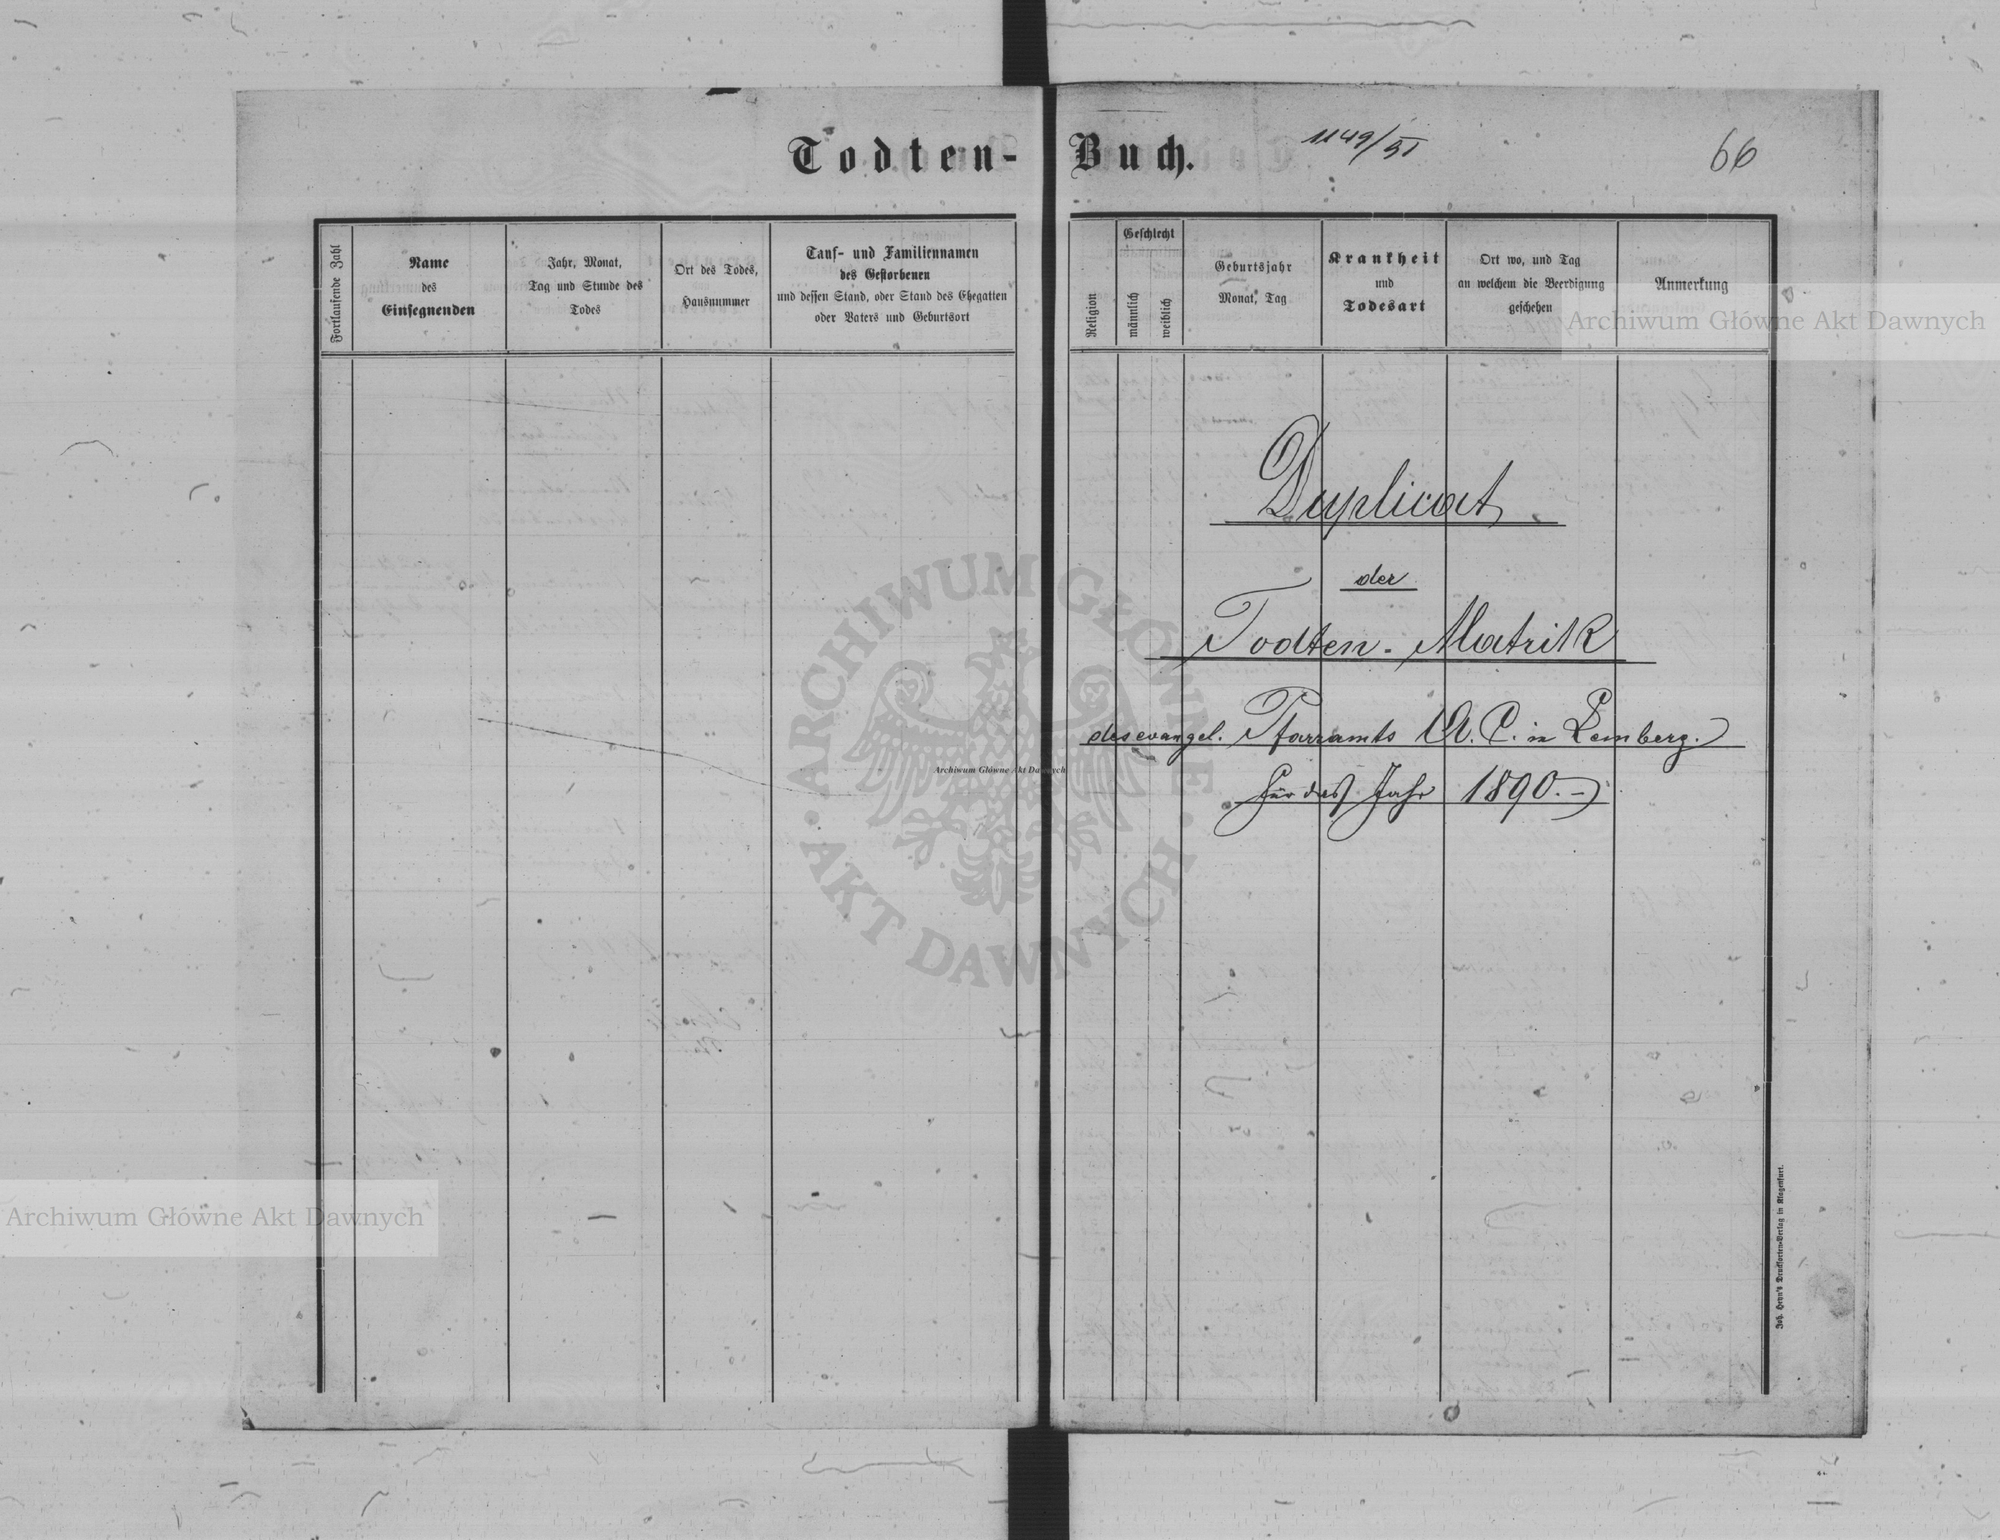 Todten-Buch.
1149/91
66
Fortlaufende Zahl
Name
des
Einsegnenden
Jahr, Monat,
Tag und Stunde des
Todes
Ort des Todes,
Hausnummer
Tauf- und Familiennamen
des Gestorbenen
und dessen Stand, oder Stand des Ehegatten
oder Vaters und Geburtsort
Religion
Geschlecht
männlich
weiblich
Geburtsjahr
Monat, Tag
Krankheit
und
Todesart
Ort wo, und Tag
an welchem die Beerdigung
geschehen
Anmerkung
Archiwum Główne Akt Dawnych
Duplicat
der
Todten-Matrik
des evangel. Pfarramts A. C. in Lemberg.
für das Jahr 1890.-
ARCHIWUM GŁÓWNE AKT DAWNYCH
Archiwum Główne Akt Dawnych
Archiwum Główne Akt Dawnych
Joh. Heyn's Drucksorten-Verlag in Klagenfurt.